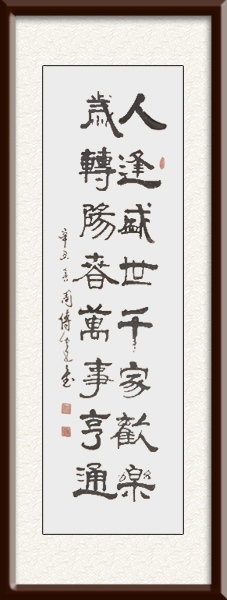 人逢盛世千家歡樂
歲轉陽春萬事亨通
辛丑春周倚